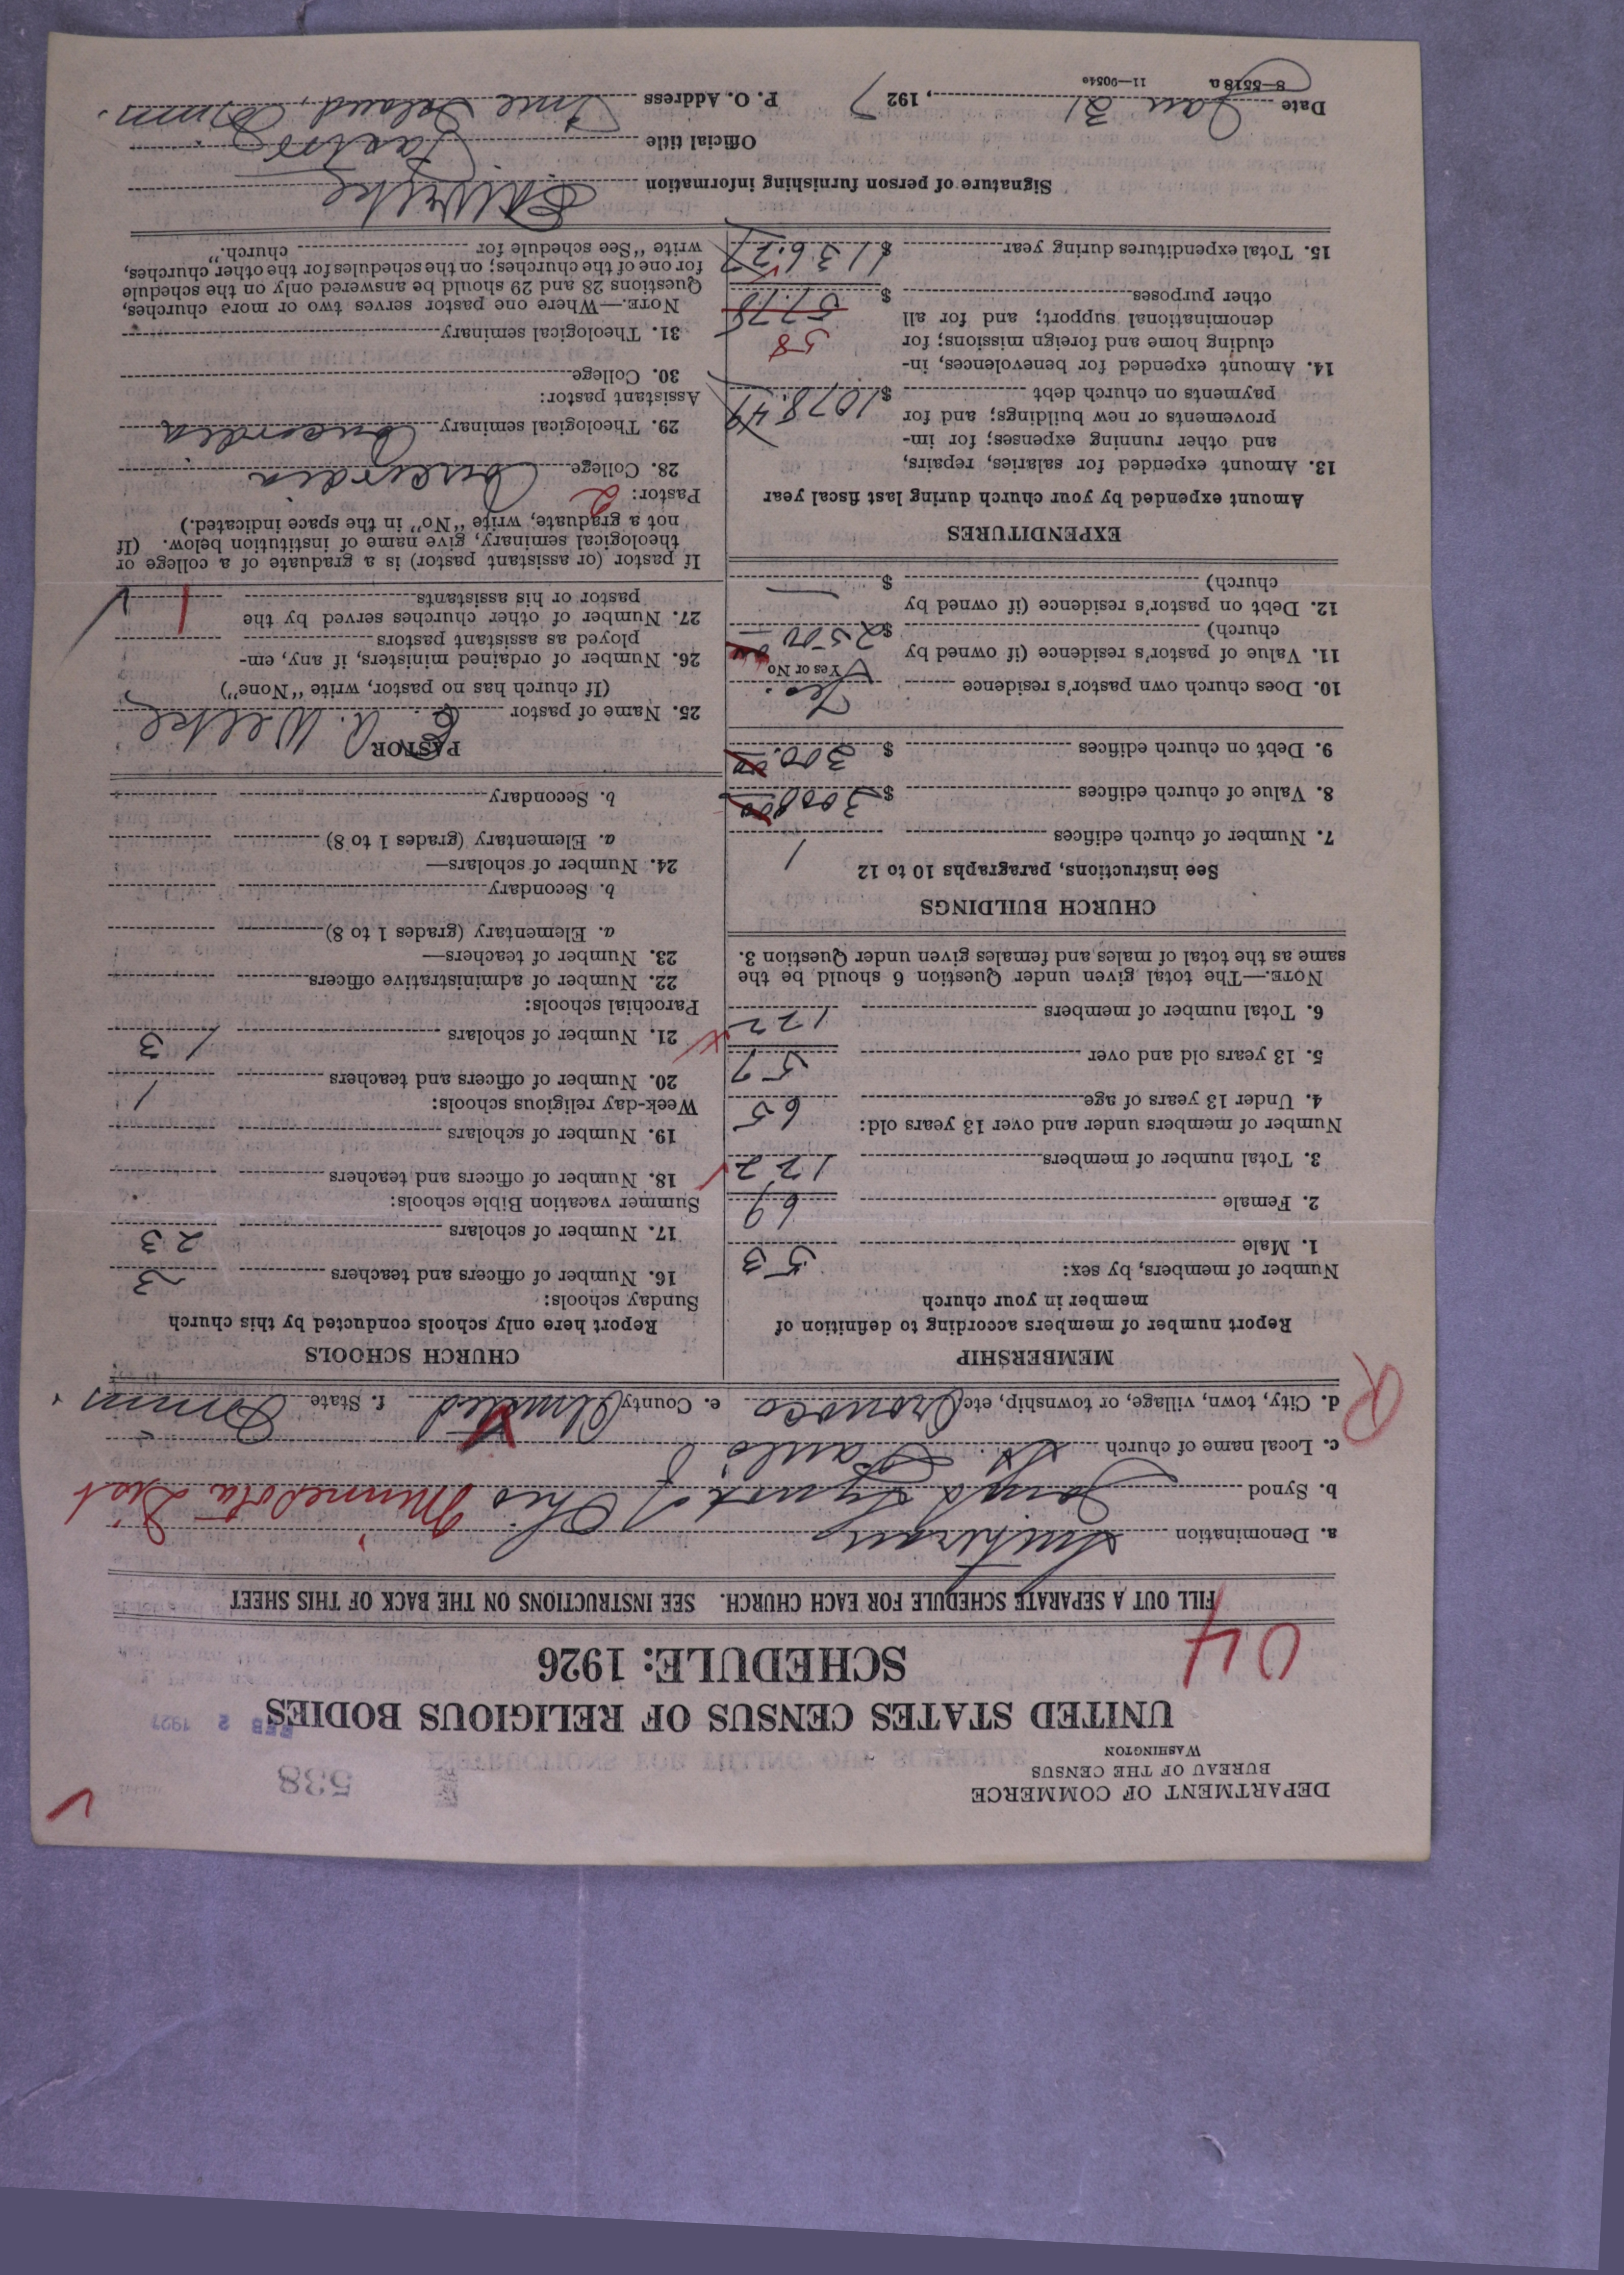 DEPARTMENT OF COMMERCE
BUREAU OF THE CENSUS
WASHINGTON
538
UNITED STATES CENSUS OF RELIGIOUS BODIES
FEB 2 1927
SCHEDULE: 1926
04
FILL OUT A SEPARATE SCHEDULE FOR EACH CHURCH. SEE INSTRUCTIONS ON THE BACK OF THIS SHEET
a. Denomination Lutheran
b. Synod Joint Synod of Ohio Minnesota Dist
c. Local name of church St Paul's
d. City, town, village, or township, etc. Oronoco e. County Olmsted f. State Minn
R
MEMBERSHIP
Report number of members according to definition of
member in your church
Number of members, by sex:
1. Male 53
2. Female 69
3. Total number of members 122
Number of members under and over 13 years old:
4. Under 13 years of age 65
5. 13 years old and over 57
6. Total number of members 122
NOTE.—The total given under Question 6 should be the
same as the total of males and females given under Question 3.
CHURCH BUILDINGS
See instructions, paragraphs 10 to 12
7. Number of church edifices 1
8. Value of church edifices $3000.00
9. Debt on church edifices $300.00
10. Does church own pastor's residence Yes.
Yes or No
11. Value of pastor's residence (if owned by
church) $2500
12. Debt on pastor's residence (if owned by
church) $ —
EXPENDITURES
Amount expended by your church during last fiscal year
13. Amount expended for salaries, repairs,
and other running expenses; for im-
provements or new buildings; and for
payments on church debt $1078.49
14. Amount expended for benevolences, in-
cluding home and foreign missions; for
denominational support; and for all
other purposes $57.78
58
15. Total expenditures during year $1136.27
CHURCH SCHOOLS
Report here only schools conducted by this church
Sunday schools:
16. Number of officers and teachers 3
17. Number of scholars 23
Summer vacation Bible schools:
18. Number of officers and teachers
19. Number of scholars
Week-day religious schools:
20. Number of officers and teachers 1
21. Number of scholars 13
Parochial schools:
22. Number of administrative officers
23. Number of teachers—
a. Elementary (grades 1 to 8)
b. Secondary
24. Number of scholars—
a. Elementary (grades 1 to 8)
b. Secondary
PASTOR
25. Name of pastor E. A. Welke
(If church has no pastor, write "None")
26. Number of ordained ministers, if any, em-
ployed as assistant pastors
27. Number of other churches served by the
pastor or his assistants 1
If pastor (or assistant pastor) is a graduate of a college or
theological seminary, give name of institution below. (If
not a graduate, write "No" in the space indicated.)
Pastor: 2
28. College Concordia
29. Theological seminary Concordia
Assistant pastor:
30. College
31. Theological seminary
NOTE.—Where one pastor serves two or more churches,
Questions 28 and 29 should be answered only on the schedule
for one of the churches; on the schedules for the other churches,
write "See schedule for church."
Signature of person furnishing information E A Welke
Official title Pastor
Date Jan 31, 1927 P. O. Address Pine Island, Minn.
8—5518a 11—9054e